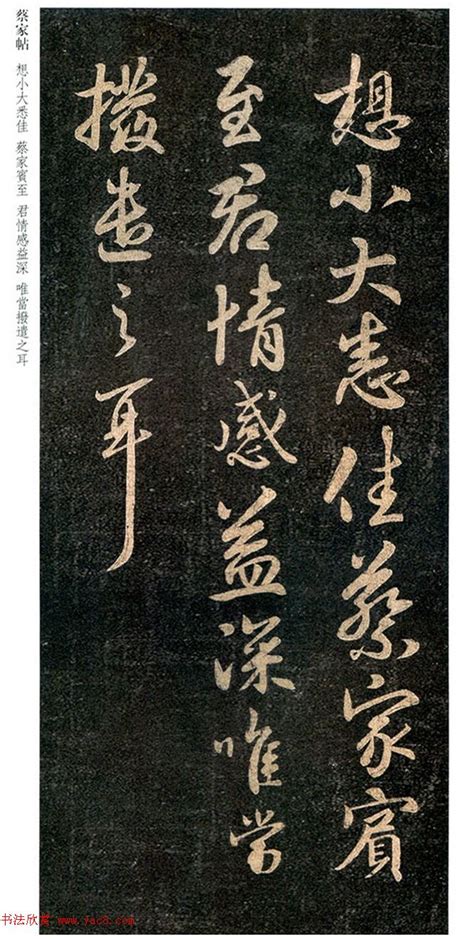 想小大悉佳蔡家賓
至君情感益深唯當
撥遣之耳
蔡家帖 想小大悉佳 蔡家賓至 君情感益深 唯當撥遣之耳
书法欣赏 www.yac8.com